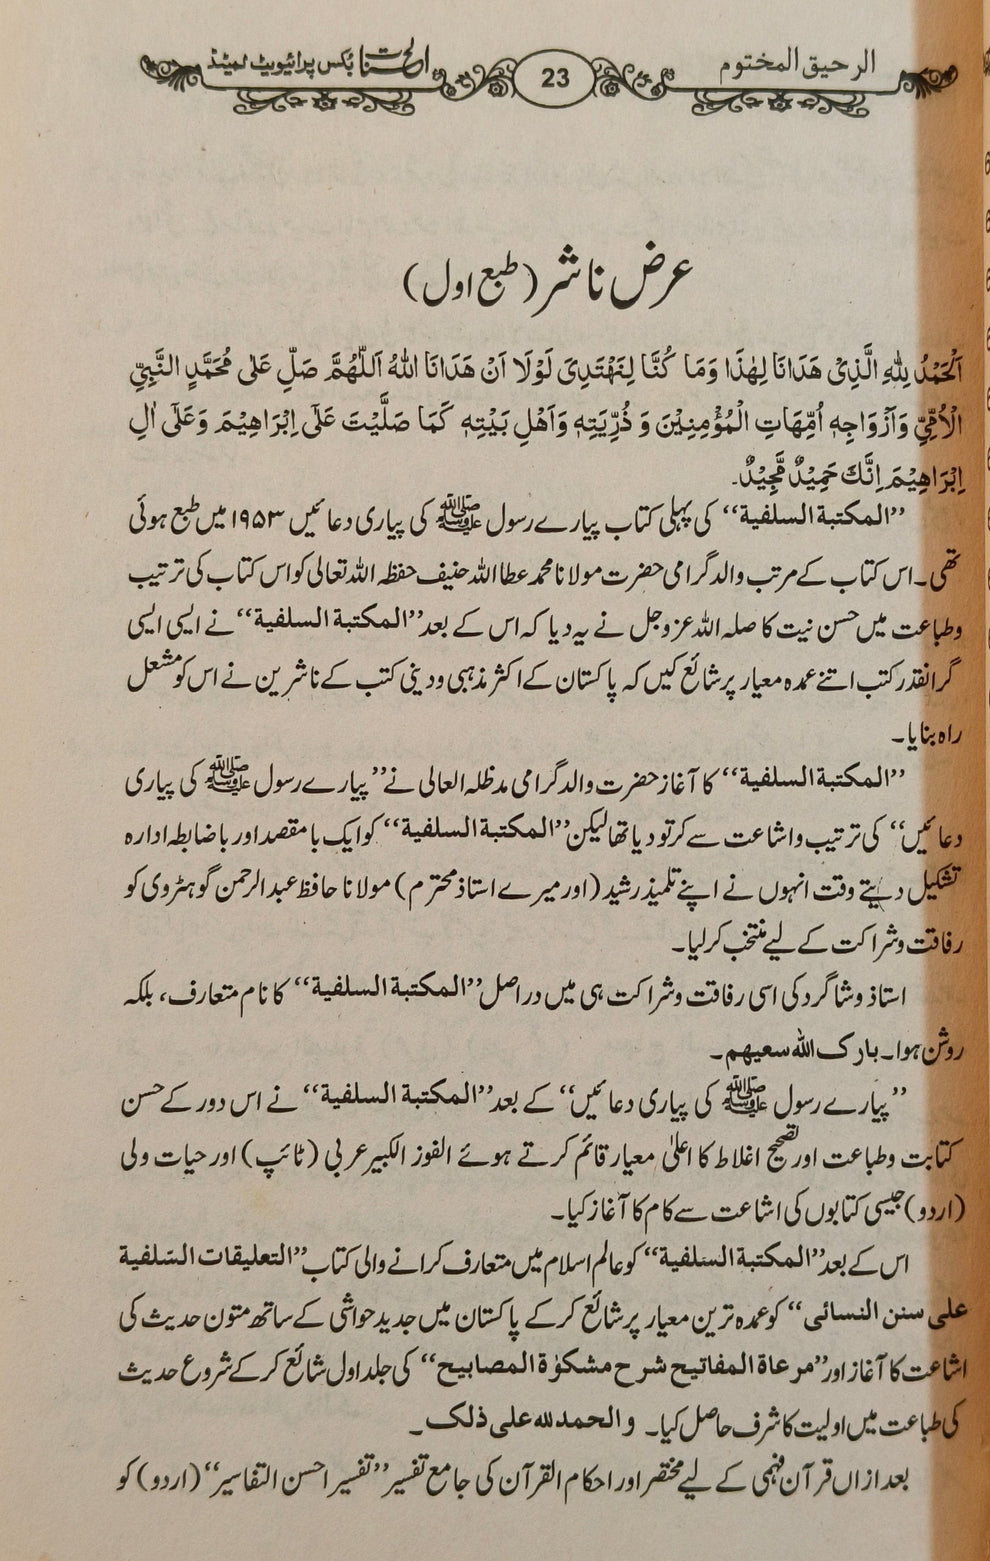 الرحیق المختوم
23
الحسنات بکس پرائیویٹ لمیٹڈ
عرض ناشر (طبع اول)
اَلْحَمْدُ لِلّٰهِ الَّذِیْ هَدَانَا لِهٰذَا وَمَا كُنَّا لِنَهْتَدِیَ لَوْلَا اَنْ هَدَانَا اللهُ اَللّٰهُمَّ صَلِّ عَلٰی مُحَمَّدٍ النَّبِيِّ
الْاُمِّيِّ وَاَزْوَاجِهٖ اُمَّهَاتِ الْمُؤْمِنِيْنَ وَ ذُرِّيَتِهٖ وَاَهْلِ بَيْتِهٖ كَمَا صَلَّيْتَ عَلٰٓی اِبْرَاهِيْمَ وَعَلٰٓی اٰلِ
اِبْرَاهِيْمَ اِنَّكَ حَمِيْدٌ مَّجِيْدٌ۔
”المکتبة السلفیة“ کی پہلی کتاب پیارے رسول ﷺ کی پیاری دعائیں ۱۹۵۳ میں طبع ہوئی
تھی۔ اس کتاب کے مرتب والد گرامی حضرت مولانا محمد عطا اللہ حنیف حفظہ اللہ تعالی کو اس کتاب کی ترتیب
وطباعت میں حسن نیت کا صلہ اللہ عزوجل نے یہ دیا کہ اس کے بعد ”المکتبة السلفیة“ نے ایسی ایسی
گرانقدر کتب اتنے عمدہ معیار پر شائع کیں کہ پاکستان کے اکثر مذہبی و دینی کتب کے ناشرین نے اس کو مشعل
راہ بنایا۔
”المکتبة السلفیة“ کا آغاز حضرت والد گرامی مدظلہ العالی نے ”پیارے رسول ﷺ کی پیاری
دعائیں“ کی ترتیب واشاعت سے کر تو دیا تھا لیکن ”المکتبة السلفیة“ کو ایک با مقصد اور با ضابطہ ادارہ
تشکیل دیتے وقت انہوں نے اپنے تلمیذ رشید (اور میرے استاذ محترم) مولانا حافظ عبد الرحمن گوہڑوی کو
رفاقت و شراکت کے لیے منتخب کر لیا۔
استاذ و شاگرد کی اسی رفاقت و شراکت ہی میں دراصل ”المکتبة السلفیة“ کا نام متعارف، بلکہ
روشن ہوا۔ بارک الله سعیهم۔
”پیارے رسول ﷺ کی پیاری دعائیں“ کے بعد ”المکتبة السلفیة“ نے اس دور کے حسن
کتابت وطباعت اور تصحیح اغلاط کا اعلیٰ معیار قائم کرتے ہوئے الفوز الکبیر عربی (ٹائپ) اور حیات ولی
(اردو) جیسی کتابوں کی اشاعت سے کام کا آغاز کیا۔
اس کے بعد ”المکتبة السلفیة“ کو عالم اسلام میں متعارف کرانے والی کتاب ”التعلیقات السّلفیة
علی سنن النسائی“ کو عمدہ ترین معیار پر شائع کر کے پاکستان میں جدید حواشی کے ساتھ متون حدیث کی
اشاعت کا آغاز اور ”مرعاة المفاتیح شرح مشکوٰة المصابیح“ کی جلد اول شائع کر کے شروع حدیث
کی طباعت میں اولیت کا شرف حاصل کیا۔ والحمد لله علی ذلک۔
بعد ازاں قرآن فہمی کے لیے مختصر اور احکام القرآن کی جامع تفسیر ”تفسیر احسن التفاسیر“ (اردو) کو